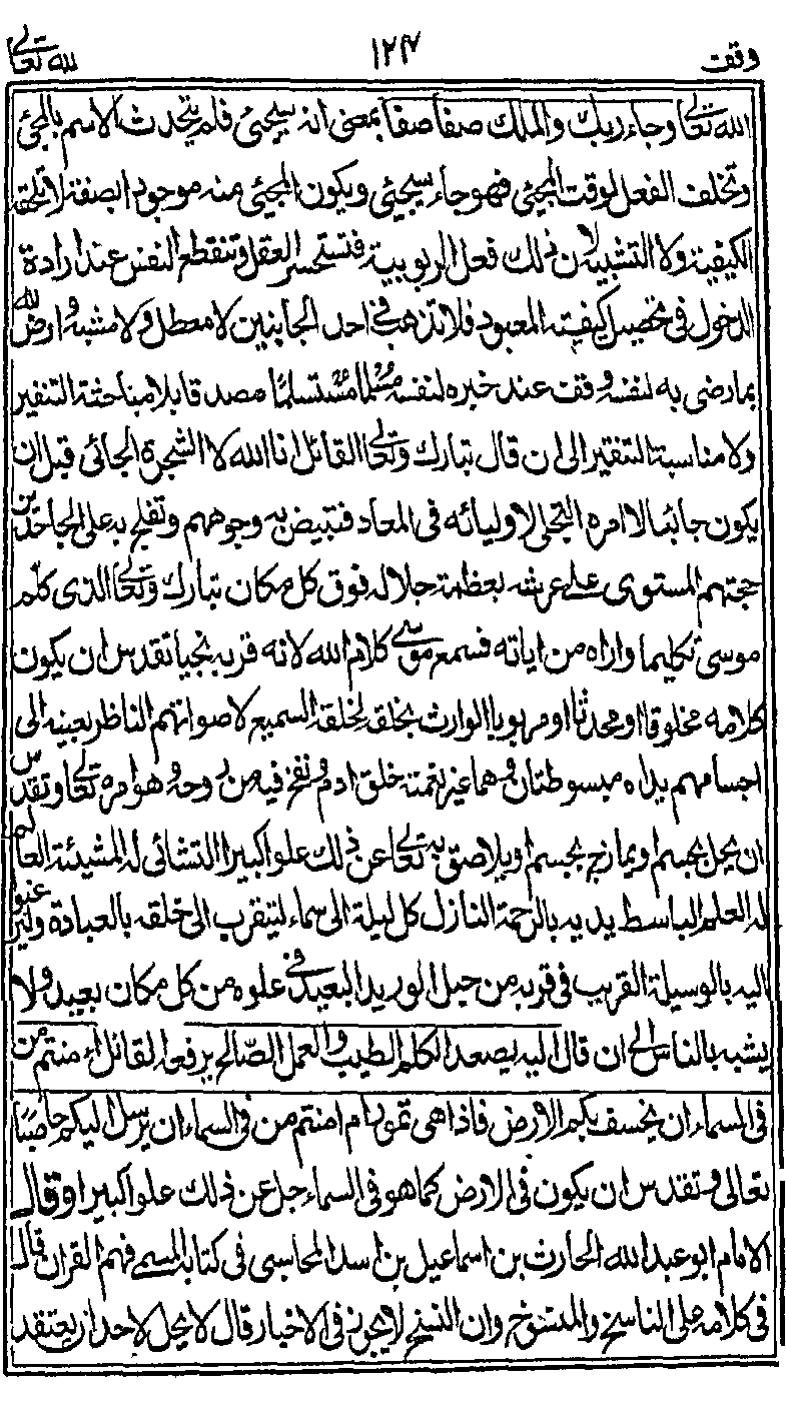 وقف ١٢٤ لله تعالى
الله تعالى وجاء ربك والملك صفا صفا بمعنى انه سيجيئ فلم يتحدث الاسم بالمجيئ
وتخلف الفعل لوقت المجيئ فهو جاء سيجيئ ويكون المجيئ منه موجود ابصفة لا تلحقه
الكيفية ولا التشبيه لان ذلك فعل الربوبية فتستحسر العقل وتنقطع النفس عند ارادة
الدخول فى تحصيل كيفية المعبود فلا تذهب فى احد الجانبين لا معطلا ولا مشبها وارض لله
بما رضى به لنفسه وقف عند خبره لنفسه مسلما مستسلما مصدقا بلا مباحثة التنفير
ولا مناسبة التنقير الى ان قال تبارك وتعالى القائل انا الله لا الشجرة الجائى قبل ان
يكون جائيا لا امره التجلى لاوليائه فى المعاد فتبيض به وجوههم وتفلج به على الجاحدين
حجتهم المستوى على عرشه بعظمة جلاله فوق كل مكان تبارك وتعالى الذى كلم
موسى تكليما واراه من اياته فسمع موسى كلام الله لانه قربه نجيا تقدس ان يكون
كلامه مخلوقا او محدثا او مربوبا الوارث بخلقه لخلقه السميع لاصواتهم الناظر بعينه الى
اجسامهم يداه مبسوطتان وهما غير نعمته خلق ادم ونفخ فيه من روحه وهو امره تعالى وتقدس
ان يحل بجسم او يمازج بجسم او يلاصق به تعالى عن ذلك علوا كبيرا التشائى له المشيئة العالم
له العلم الباسط يديه بالرحمة النازل كل ليلة الى سماء ليتقرب الى خلقه بالعبادة وليرغبوا
اليه بالوسيلة القريب فى قربه من حبل الوريد البعيد فى علوه من كل مكان بعيد ولا
يشبه بالناس الى ان قال اليه يصعد الكلم الطيب والعمل الصالح يرفعه القائل ءامنتم من
فى السماء ان يخسف بكم الارض فاذا هى تمور ام امنتم من فى السماء ان يرسل اليكم حاصبا
تعالى وتقدس ان يكون فى الارض كما هو فى السماء جل عن ذلك علوا كبيرا وقال
الامام ابو عبد الله الحارث بن اسماعيل بن اسد المحاسبى فى كتابه المسمى فهم القران قال
فى كلامه على الناسخ والمنسوخ وان النسخ لا يجوز فى الاخبار قال لا يحل لاحد ان يعتقد